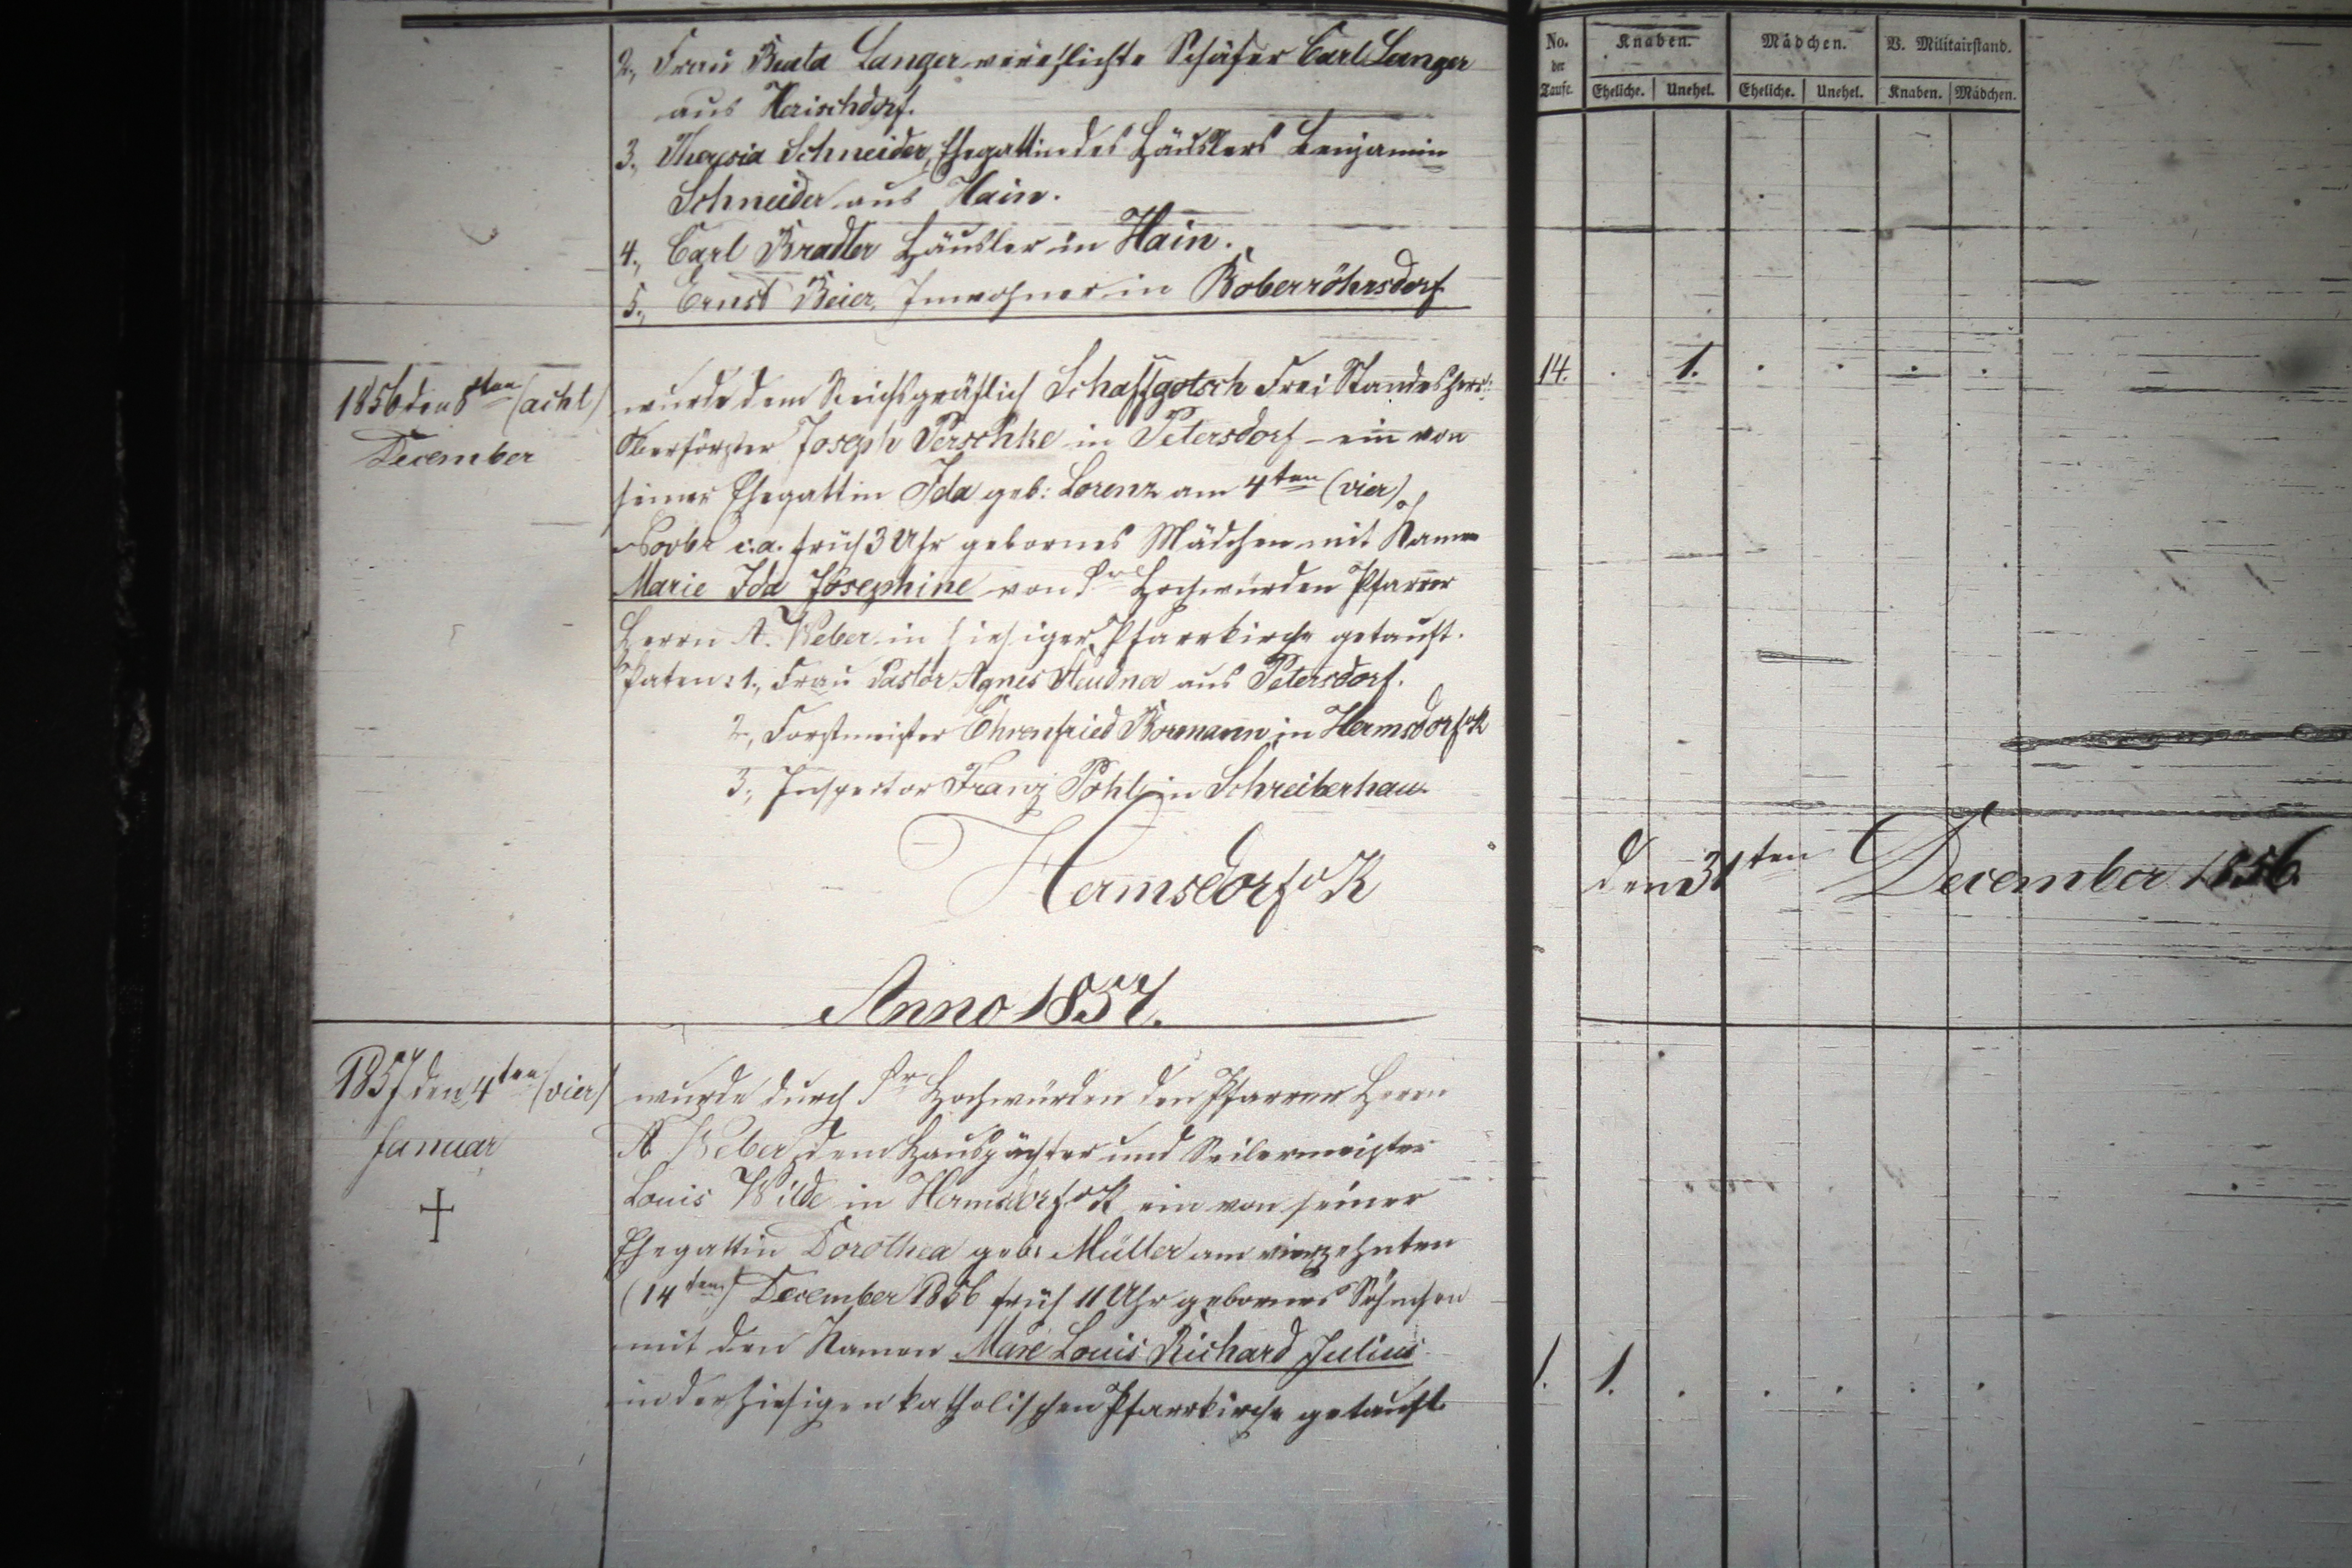 2., Frau Beata Langer verehlichte Schäfer Carl Langer
aus Herischdorf.
3., Theresia Schneider, Ehegattin des Häuslers Benjamin
Schneider aus Hain.
4., Carl Bradler Häusler in Hain.
5., Ernst Beier, Inwohner in Boberröhrsdorf
1856 den 8ten (acht)
December
wurde dem Reichsgräflich Schaffgotsch Frei Standesherr:
Oberförster Joseph Perschke in Petersdorf – ein von
seiner Ehegattin Ida geb: Lorenz am 4ten (vier)
Novbr c. a. früh 3 Uhr gebornes Mädchen mit Namen
Marie Ida Josephine von Sr Hochwürden Pfarrer
Herrn A. Weber in hiesiger Pfarrkirche getauft.
Paten: 1., Frau Pastor Agnes Steudner aus Petersdorf.
2., Forstmeister Ehrenfried Bormann in Hermsdorf u/K
3., Inspector Franz Pohl in Schreiberhau
Hermsdorf u/K
Anno 1857.
1857 den 4ten (vier)
Januar
wurde durch Sr Hochwürden den Pfarrer Herrn
A. Weber, dem Hauspächter und Seilermeister
Louis Wilde in Hermsdorf u/K ein von seiner
Ehegattin Dorothea geb: Müller am vierzehnten
(14ten) December 1856 früh 11 Uhr gebornes Söhnchen
mit den Namen Louis Richard Julius
in der hiesigen katholischen Pfarrkirche getauft
No. der Taufe. Knaben. Mädchen. B. Militairstand.
Eheliche. Unehel. Eheliche. Unehel. Knaben. Mädchen.
14. . 1. . . . .
den 31ten December 1856.
1. 1. . . . . .